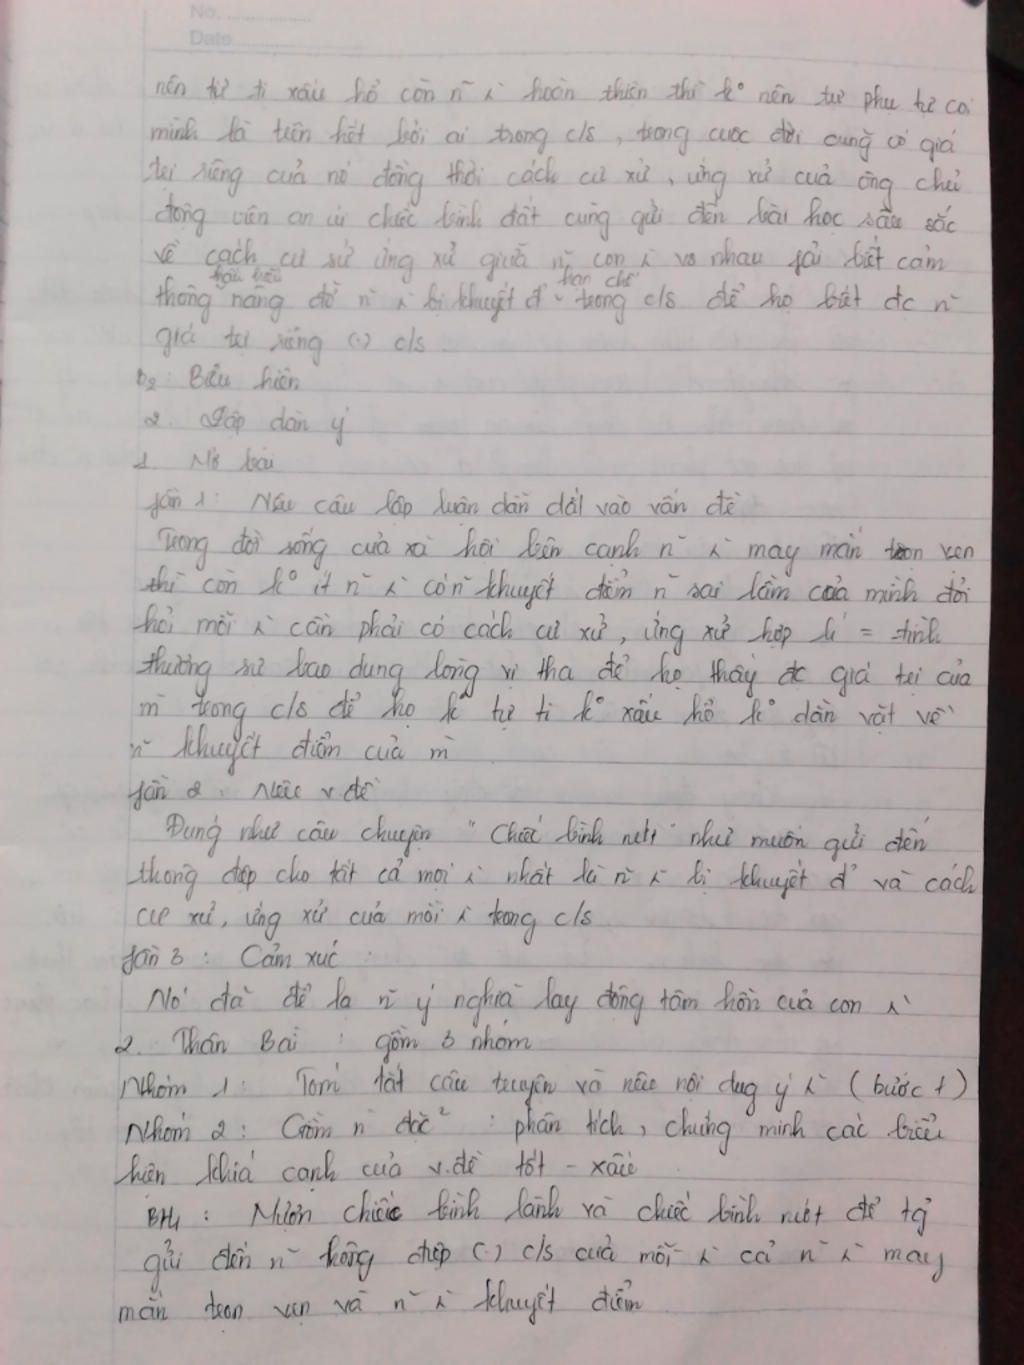 No. ..................
Date..........................
nên tự ti xấu hổ còn n~ λ hoàn thiện thì k° nên tự phụ tự coi
mình là trên hết bởi ai trong c/s, trong cuộc đời cũng có giá
trị riêng của nó đồng thời cách cư xử, ứng xử của ông chủ
động viên an ủi chiếc bình đất cũng gửi đến bài học sâu sắc
về cách cư sử ứng xử giữa n~ con λ vs nhau fải biết cảm
hiểu biết hạn chế
thông nâng đỡ n~ λ bị khuyết đ' trong c/s để họ biết đc n~
giá trị riêng (.) c/s
b2: Biểu hiện
2. Lập dàn ý
1. Mở bài
fần 1: Nêu câu lập luận dẫn dắt vào vấn đề
Trong đời sống của xã hội bên cạnh n~ λ may mắn tròn vẹn
thì còn k° ít n~ λ có n~ khuyết điểm n~ sai lầm của mình đòi
hỏi mỗi λ cần phải có cách cư xử, ứng xử hợp lí = tình
thương sự bao dung lòng vị tha để họ thấy đc giá trị của
m̀ trong c/s để họ k° tự ti k° xấu hổ k° dằn vặt về
n~ khuyết điểm của m̀
fần 2: Nêu v.đề
Đúng như câu chuyện "Chiếc bình nứt" như muốn gửi đến
thông điệp cho tất cả mọi λ nhất là n~ λ bị khuyết đ' và cách
cư xử, ứng xử của mỗi λ trong c/s
fần 3: Cảm xúc
Nó đã để lại n~ ý nghĩa lay động tâm hồn của con λ
2. Thân Bài: gồm 3 nhóm
Nhóm 1: Tóm tắt câu truyện và nêu nội dug ý λ (bước 1)
Nhóm 2: Gồm n~ đoạn²: phân tích, chứng minh các biểu
hiện khía cạnh của v.đề tốt - xấu
BH1: Mượn chiếc bình lành và chiếc bình nứt để tg̉
gửi đến n~ thông điệp (.) c/s của mỗi λ cả n~ λ may
mắn tròn vẹn và n~ λ khuyết điểm